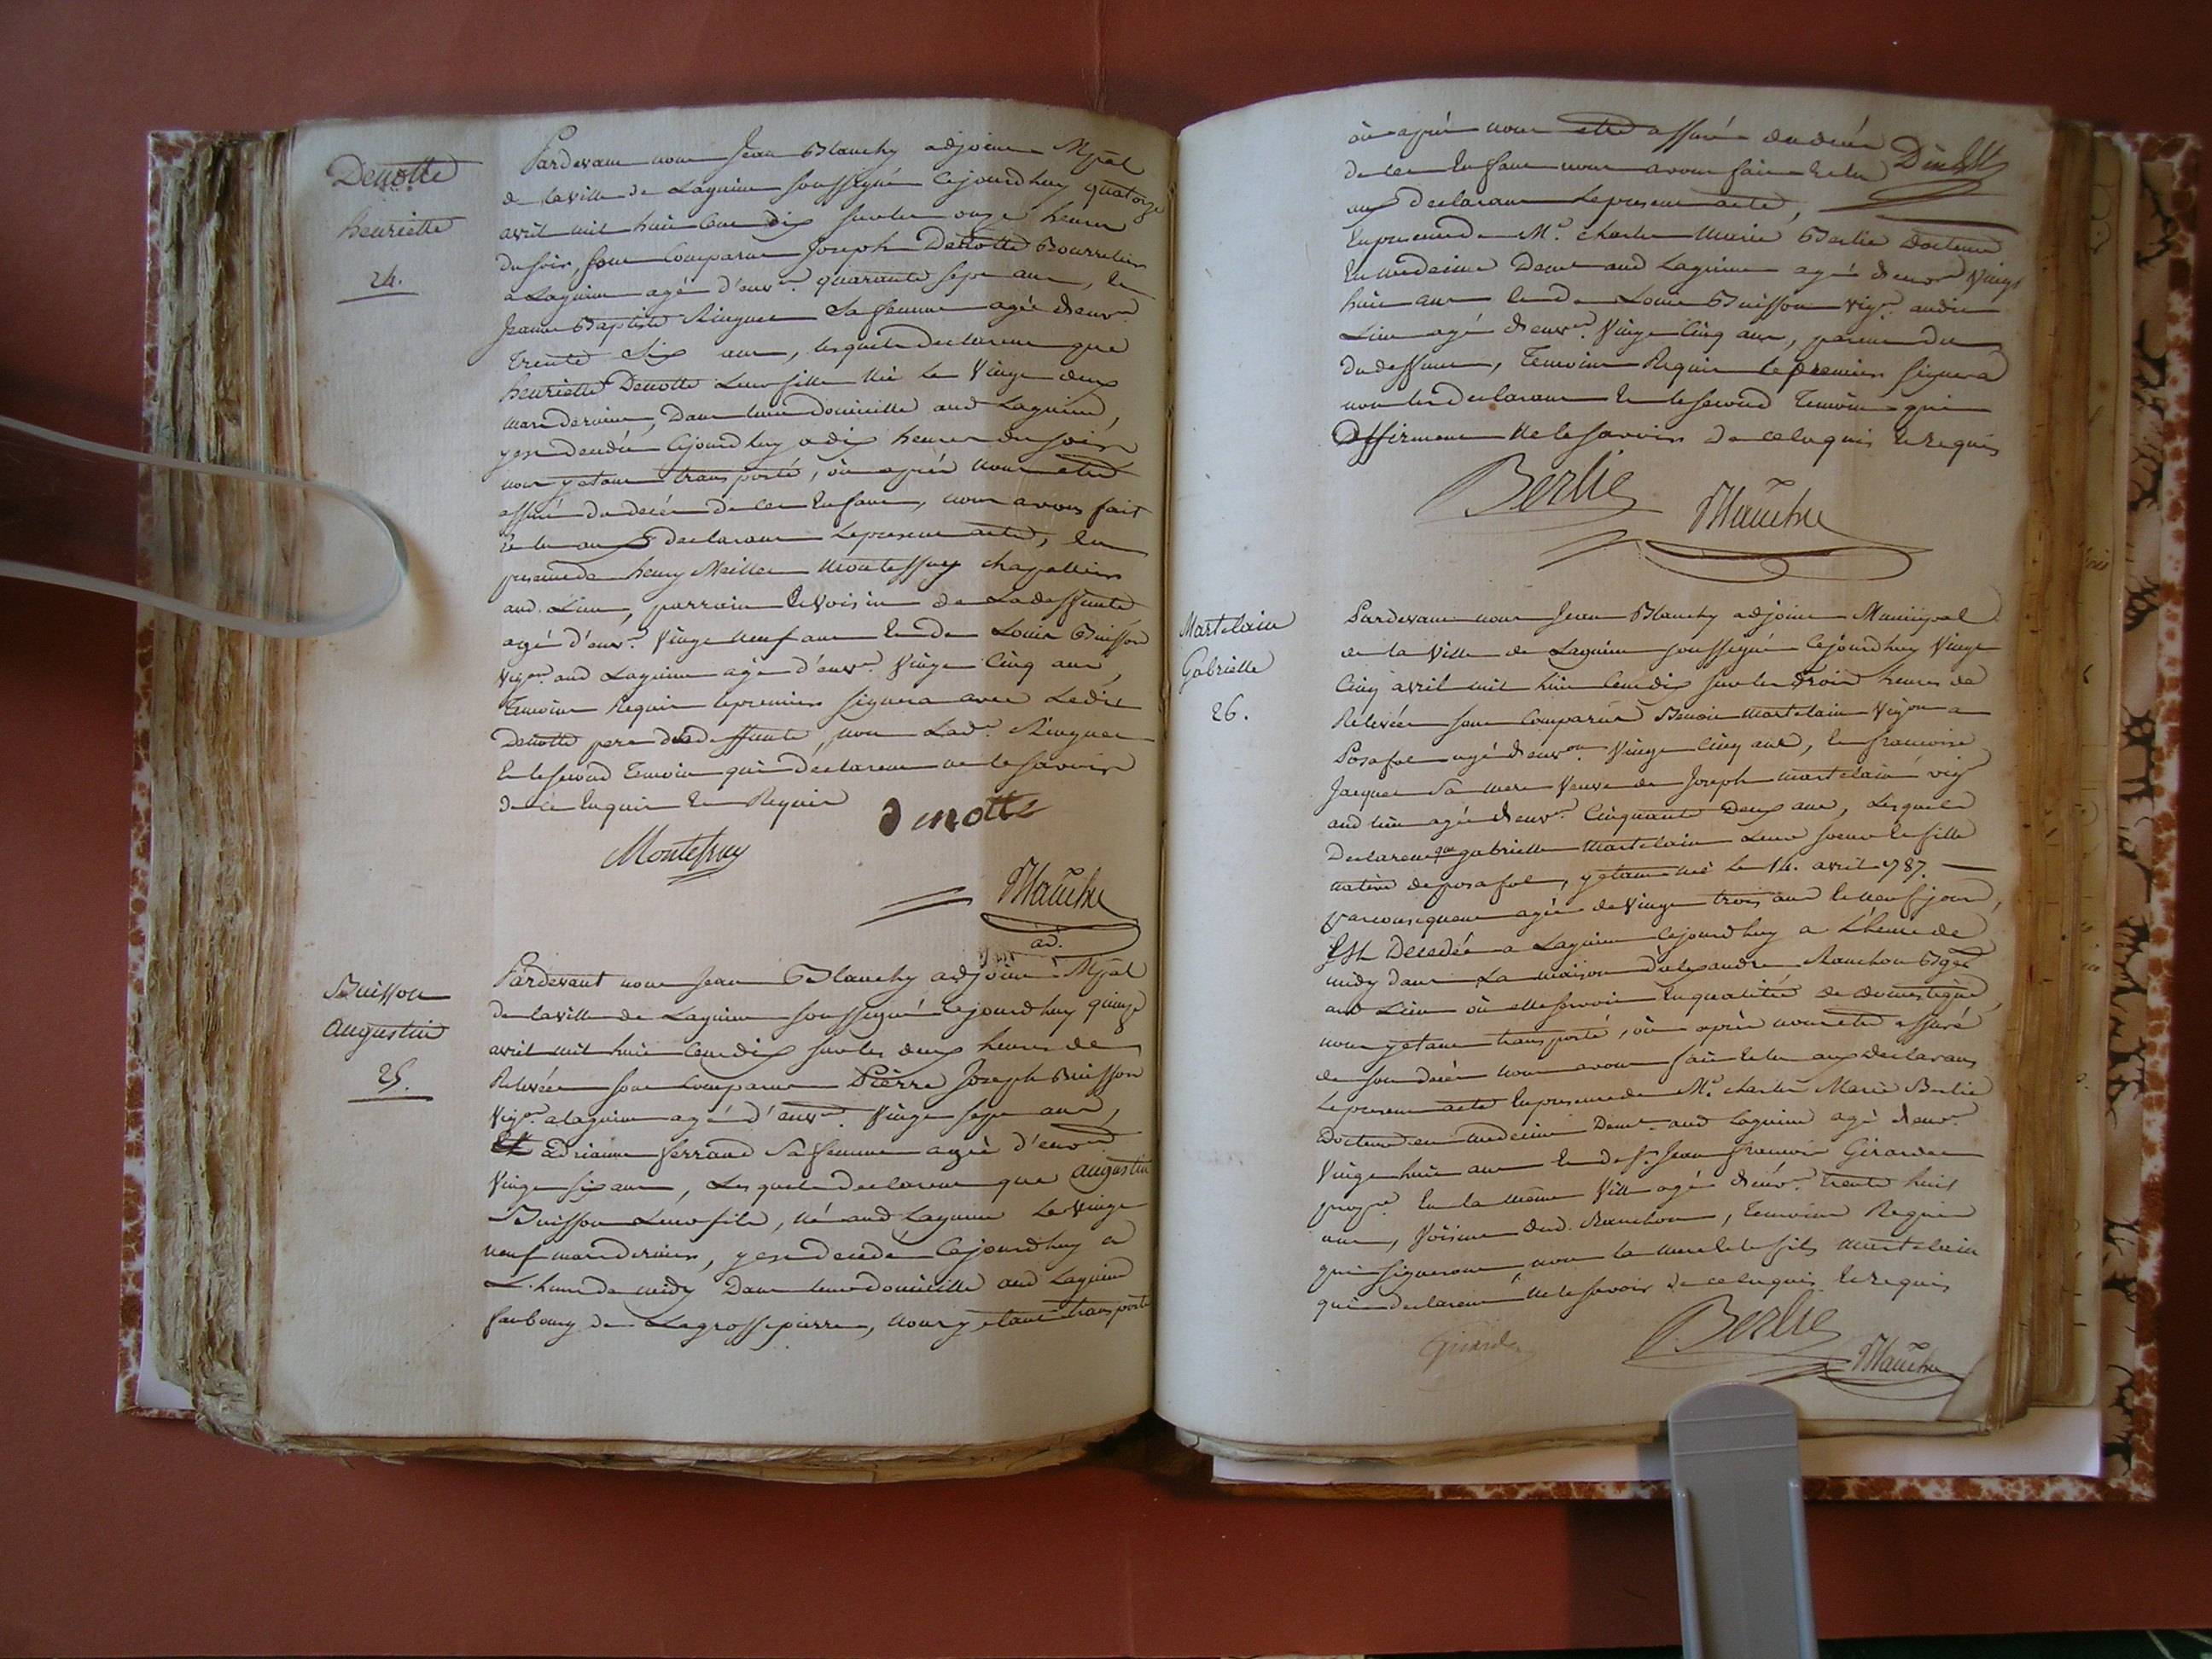 Denotte
henriette
24.
Pardevant nous Jean Blanchy adjoint Mpal
de la ville de Lagnieu soussigné Cejourdhuy quatorze
avril mil huit Cent dix sur les onze heures
du soir, sont Comparus Joseph Denotte Bourrelier
a Lagnieu agé d'envon quarante sept ans, et
Jeanne Baptiste sa femme agée denvon
trente Six ans, lesquels declarent que
henriette Denotte Leur fille née le Vingt deux
mars dernier, Dans leur domicille aud Lagnieu,
y est decedée Cejourdhuy a dix heures du soir
nous y etant transporté, où après nous etre
assuré du decés de cet Enfant, nous avons fait
et lu aux declarants Le present acte, En
presence de henry Montessuy chapellier
aud. Lieu, parrain et voisin de La deffunte
agé d'envn Vingt neuf ans et de Louis Buisson
Vigon aud Lagnieu agé d'envn Vingt Cinq ans,
Temoins Requis le premier signera avec Ledit
Denotte pere de lad deffunte, non Lade
Et le second temoin qui declarent ne le savoir
de ce Enquis et Requis
Montessuy
denotte
Blanchy
ad.
Buisson
Augustin
25.
Pardevant nous Jean Blanchy adjoint Mpal
de la ville de Lagnieu soussigné Cejourdhuy quinze
avril mil huit Cent dix sur les deux heures de
Relevée sont Comparus Pierre Joseph Buisson
Vigon a lagnieu agé d'envn Vingt sept ans,
Et Edrianne ferrand Sa femme agée d'envon
Vingt six ans, Lesquels declarent que augustin
Buisson Leur fils, né aud Lagnieu Le Vingt
neuf mars dernier, y est decedé Cejourdhuy a
L'heure de midy Dans leur domicille aud Lagnieu
faubourg de Lagrossepierre, nous y etant transporté
où après nous etre assuré du decés
de cet Enfant nous avons fait et lu
aux declarants Le present acte,
En presence de Mr. charles Marie Berlie docteur
En medecine Demt aud Lagnieu agé denvon Vingt
huit ans et de Louis Buisson Vigon audit
Lieu agé denvon Vingt Cinq ans, parent du
du deffunt, Temoins Requis le premier signera
non les declarants Et le second Temoin qui
affirment ne le savoir de ce Enquis et requis
Berlie
Blanchy
Martelain
Gabrielle
26.
Pardevant nous Jean Blanchy adjoint Municipal
de la Ville de Lagnieu soussigné Cejourdhuy Vingt
Cinq avril mil huit Cent dix sur les trois heures de
Relevée sont Comparus Benoit martelain Vigon a
Posafol agé denvon Vingt Cinq ans, Et francoise
Jacquet Sa mere Veuve de Joseph martelain vign
aud lieu agée denvn Cinquante Deux ans, Lesquels
Declarent que gabrielle Martelain Leur soeur et fille
native de posafol, y etant née le 14. avril 1787.
par consequent agée de Vingt trois ans et neuf jours,
Est Decedée a Lagnieu Cejourdhuy a L'heure de
midy dans La maison d'alexandre Ranchon
aud Lieu où elle servoit En qualitée de domestique,
nous y etant transporté, où après nous etre assuré
de son decés nous avons fait et lu aux declarans
Le present acte En presence de Mr. charles Marie Berlie
Docteur en medecine Demt aud Lagnieu agé denvn
Vingt huit ans et de Sr. Jean francois Girardet
propre En la même Ville agé denvn Trente huit
ans, voisins dud. Ranchon, temoins Requis
qui signeront non la mere et le fils martelain
qui declarent ne le savoir de ce Enquis et requis
Berlie
Blanchy